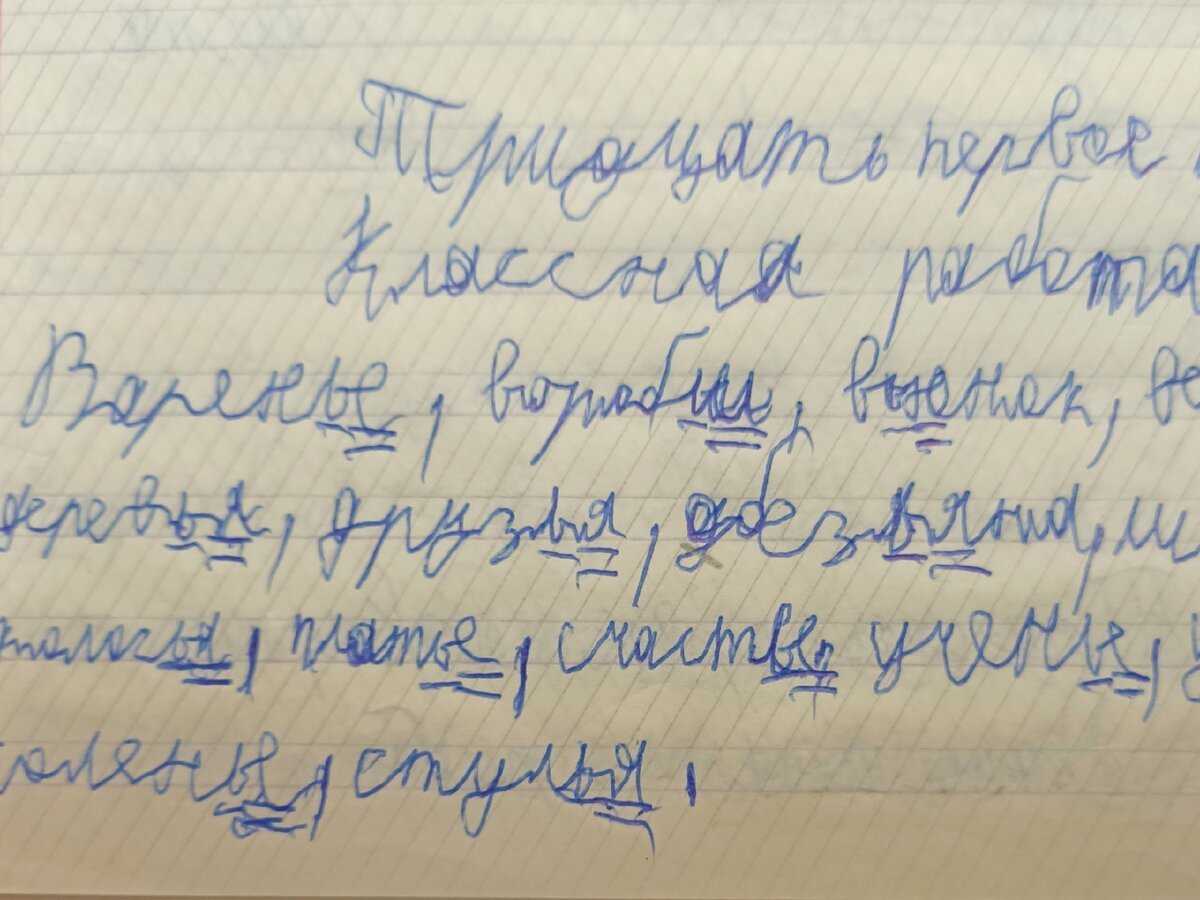 Тридцать первое
Классная работа
Варенье, воробьи, вьюнок,
деревья, друзья, обезьяна,
колосья, платье, счастье, ученье,
соленье, стулья,